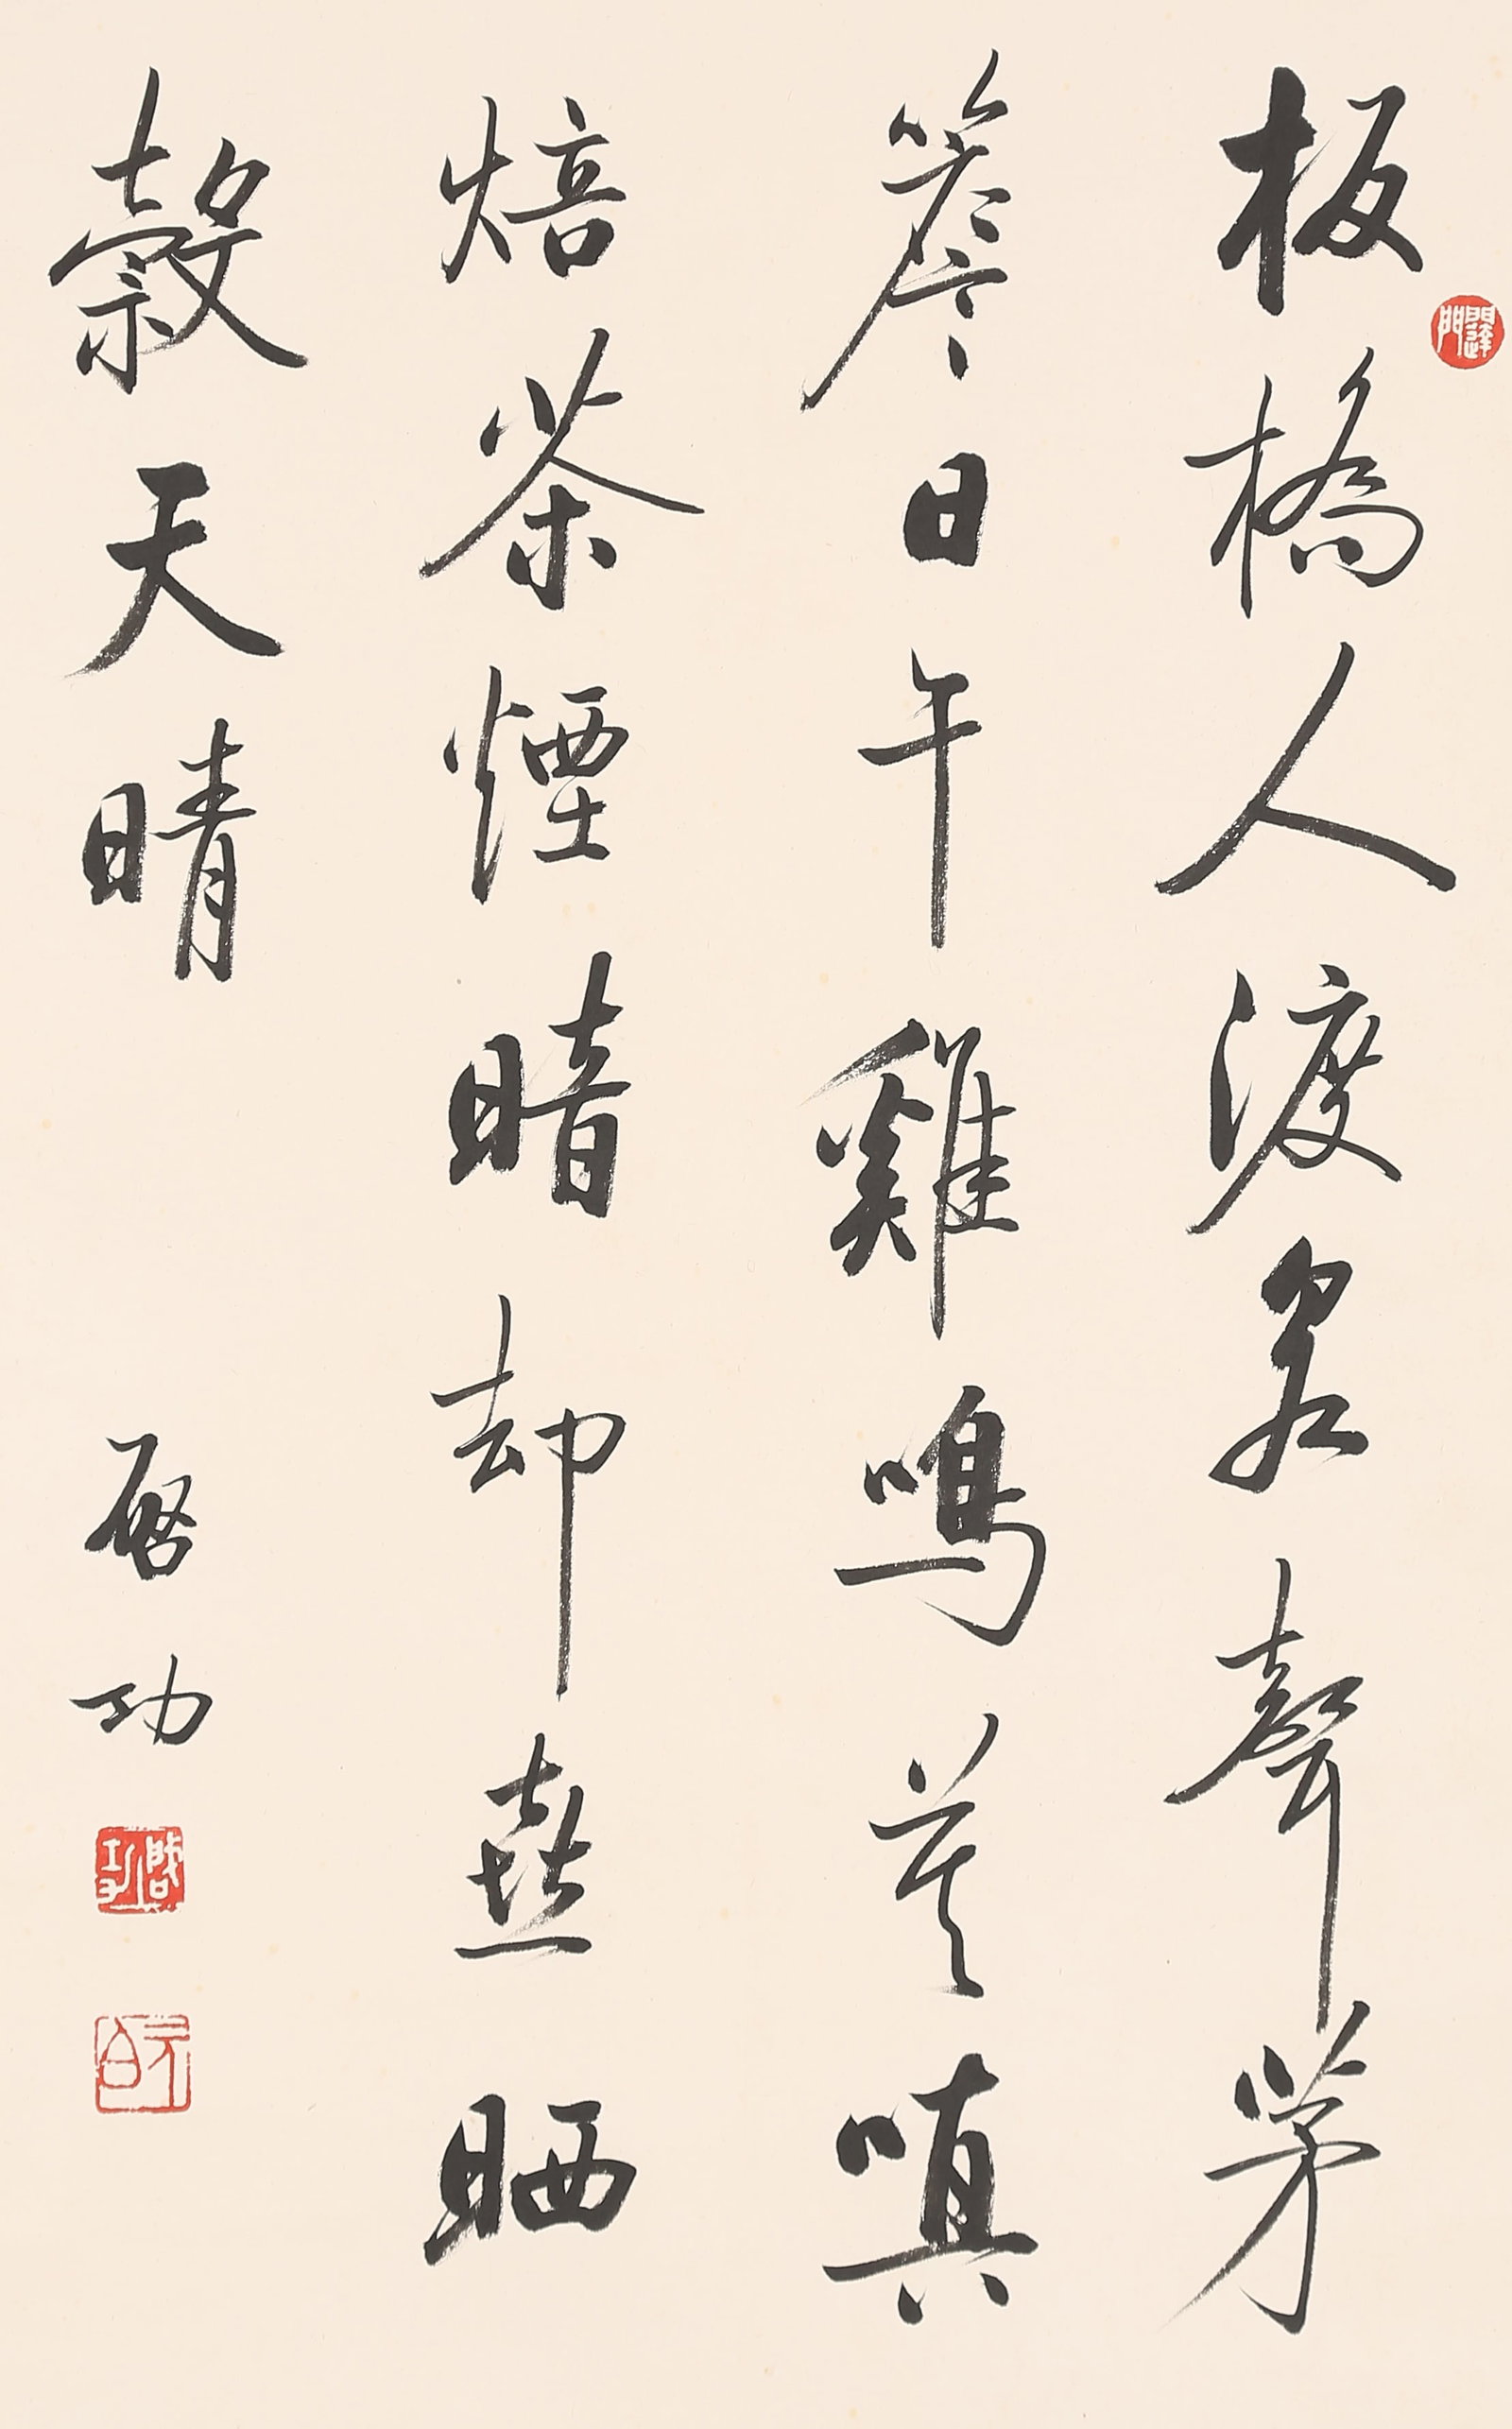 板橋人渡泉聲茅
簷日午雞鳴莫嗔
焙茶煙暗却喜晒
穀天晴
啟功
啟功
元白